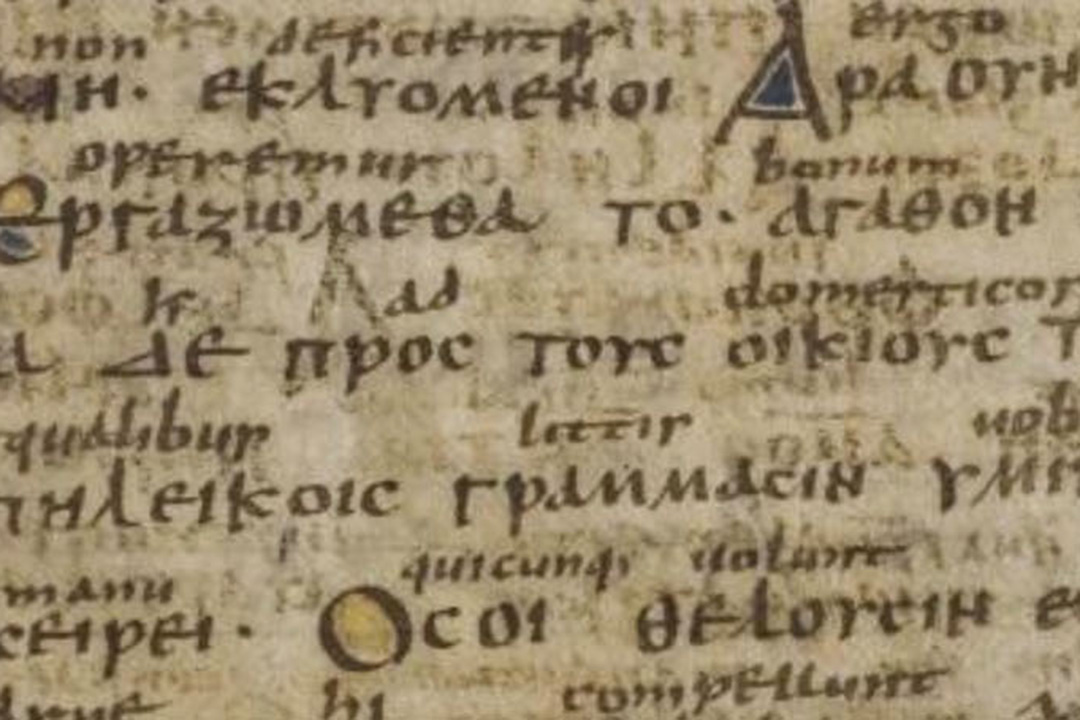 non deficientes ergo
ΕΚΛΥΟΜΕΝΟΙ ΑΡΑ ΟΥΝ
operemur bonum
ΕΡΓΑΖΩΜΕΘΑ ΤΟ· ΑΓΑΘΟΝ
Ad domesticos
ΔΕ ΠΡΟC ΤΟΥC ΟΙΚΙΟΥC Τ
qualibus litteris uob
ΠΗΛΕΙΚΟΙC ΓΡΑΜΜΑCΙΝ ΥΜΙΝ
quicunq; uolunt
manu
ΧΕΙΡΕΙ· ΟCΟΙ ΘΕΛΟΥCΙΝ Ε
hi compellunt